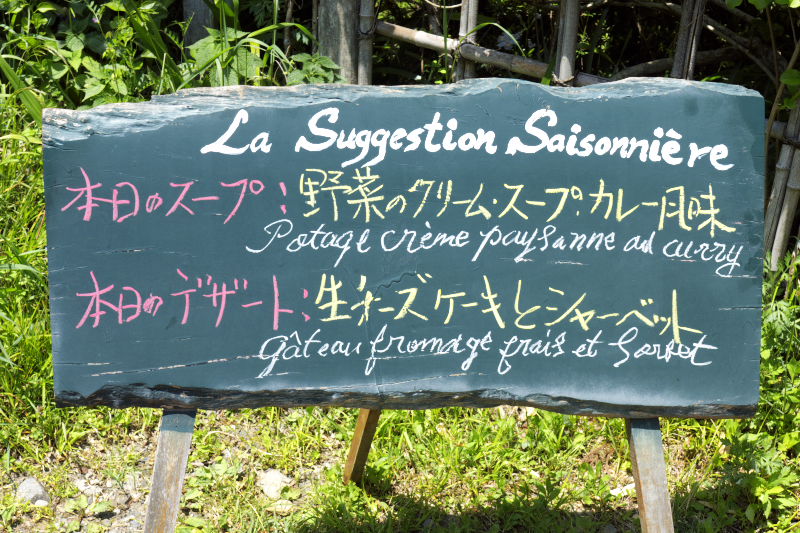 La Suggestion Saisonnière
本日のスープ:野菜のクリーム・スープ.カレー風味
Potage crème paysanne au curry
本日のデザート:生チーズケーキとシャーベット
Gâteau fromage frais et Sorbet